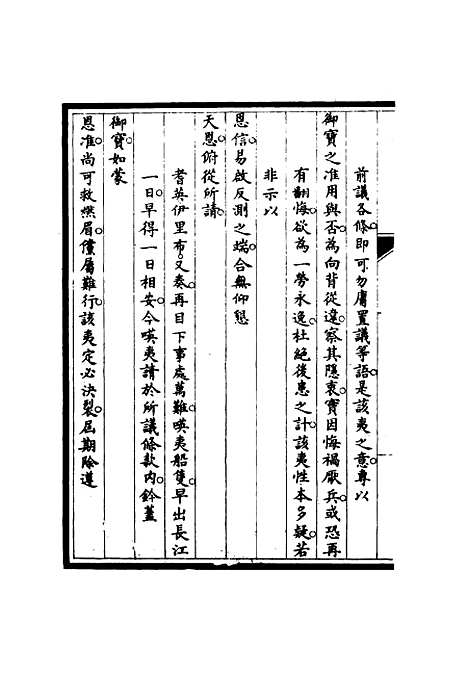 前議各條即可勿庸置議等語是該夷之意專以
御寶之准用與否為向背從違察其隱衷實因悔禍厭兵或恐再
有翻悔欲為一勞永逸杜絕後患之計該夷性本多疑若
非示以
恩信易啟反測之端合無仰懇
天恩俯從所請
耆英伊里布又奏再目下事處萬難暎夷船隻早出長江
一日早得一日相安今暎夷請於所議條款內鈐蓋
御寶如蒙
恩准尚可救燃眉儻屬難行該夷定必決裂屆期除遵